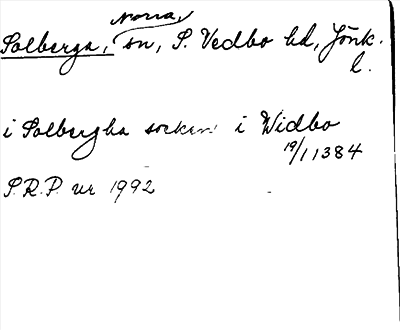 Norra,
Solberga, sn, S. Vedbo hd, Jönk.
l.
i Solbergha socken i Widbo
19/1 1384
S.R.P. nr 1992